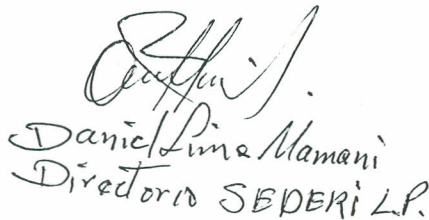 Daniel Lima Mamani
Directorio SEDERI L.P.